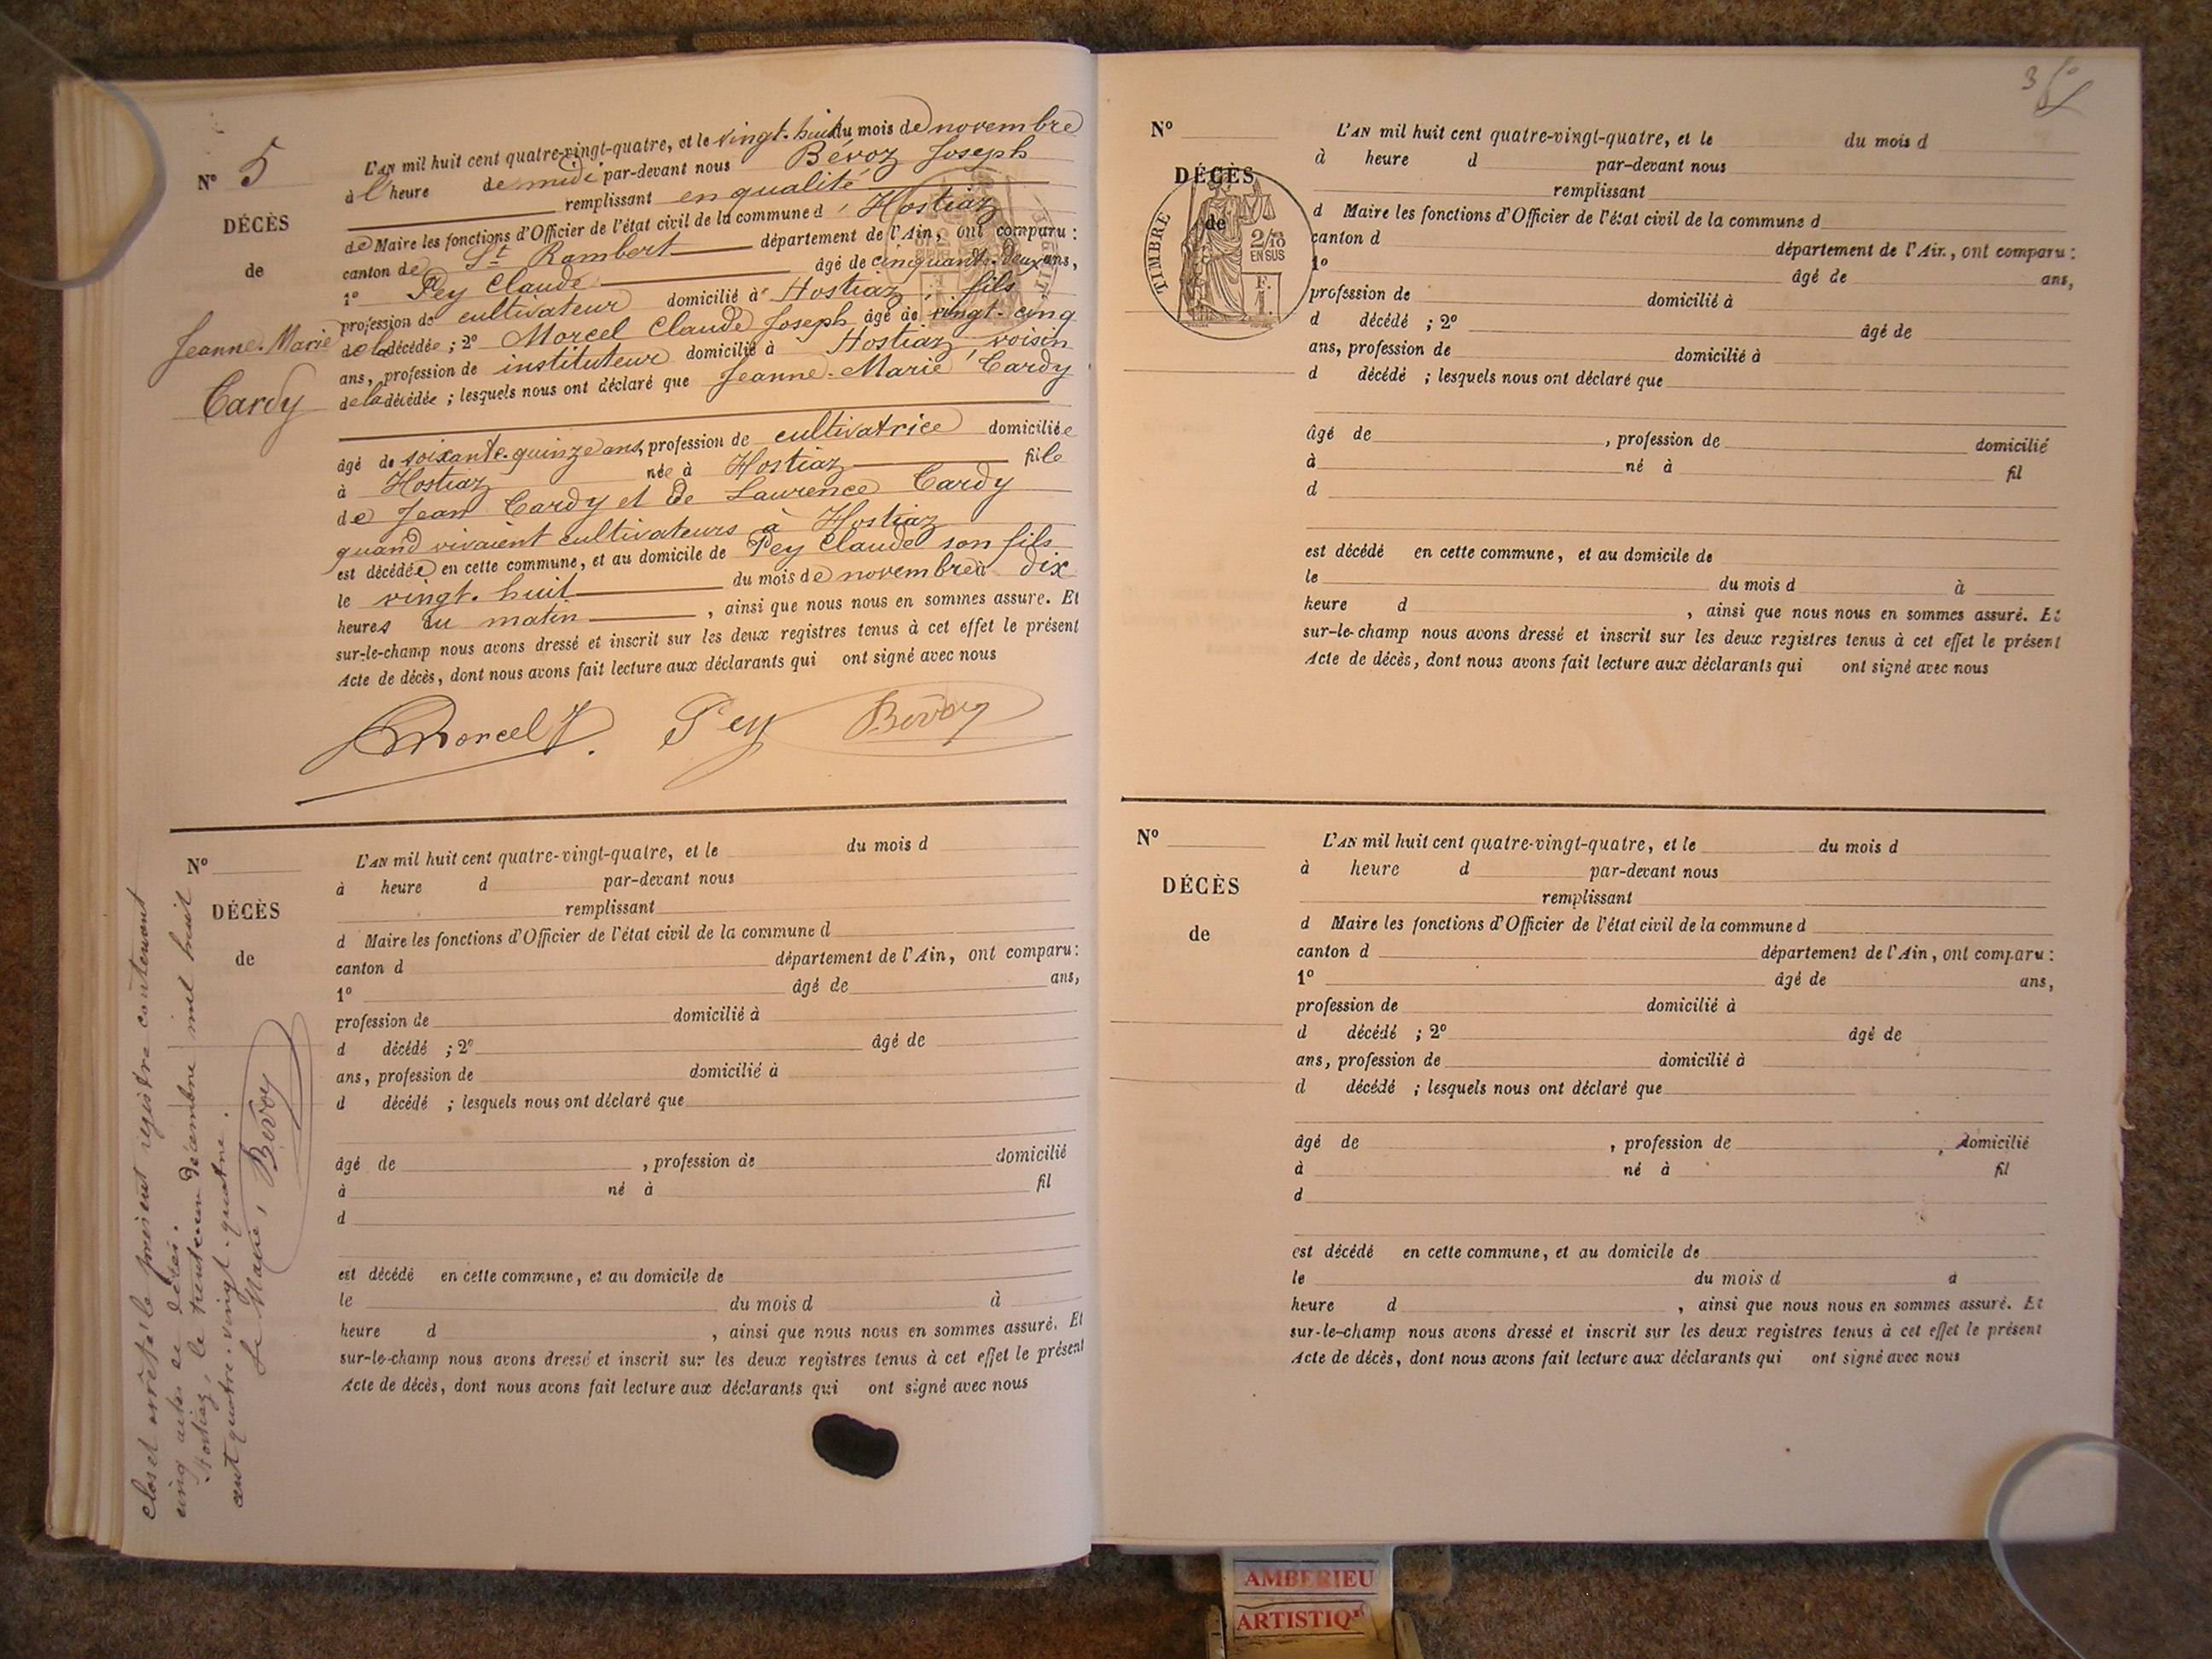 N° 5
DÉCÈS
de
Jeannne-Marie
Cardy
L'AN mil huit cent quatre-vingt-quatre, et le vingt-huit du mois de novembre
à l'heure de midi par-devant nous Bévoz Joseph
remplissant en qualité
de Maire les fonctions d'Officier de l'état civil de la commune d'Hostiaz
canton de St Rambert département de l'Ain, ont comparu :
1° Pey Claude âgé de cinquante-deux ans,
profession de cultivateur domicilié à Hostiaz, fils
de la décédée ; 2° Morcel Claude Joseph âgé de vingt-cinq
ans, profession de instituteur domicilié à Hostiaz, voisin
de la décédée ; lesquels nous ont déclaré que Jeanne-Marie Cardy
âgé de soixante-quinze ans, profession de cultivatrice domiciliée
à Hostiaz née à Hostiaz fille
de Jean Cardy et de Laurence Cardy
quand vivaient cultivateurs à Hostiaz
est décédée en cette commune, et au domicile de Pey Claude son fils
le vingt-huit du mois de novembre à dix
heures du matin, ainsi que nous nous en sommes assuré. Et
sur-le-champ nous avons dressé et inscrit sur les deux registres tenus à cet effet le présent
Acte de décès, dont nous avons fait lecture aux déclarants qui ont signé avec nous
Morcel J. Pey Bévoz
N°
DÉCÈS
de
L'AN mil huit cent quatre-vingt-quatre, et le du mois d
à heure d par-devant nous
remplissant
d Maire les fonctions d'Officier de l'état civil de la commune d
canton d département de l'Ain, ont comparu :
1° âgé de ans,
profession de domicilié à
d décédé ; 2° âgé de
ans, profession de domicilié à
d décédé ; lesquels nous ont déclaré que
âgé de , profession de domicilié
à né à fil
d
est décédé en cette commune, et au domicile de
le du mois d à
heure d , ainsi que nous nous en sommes assuré. Et
sur-le-champ nous avons dressé et inscrit sur les deux registres tenus à cet effet le présent
Acte de décès, dont nous avons fait lecture aux déclarants qui ont signé avec nous
Clos et arrêté le présent registre contenant
cinq actes de décès.
Hostiaz, le trente-un décembre mil huit
cent quatre-vingt-quatre.
Le Maire, Bévoz
N°
DÉCÈS
de
TIMBRE
2/10
EN SUS
L'AN mil huit cent quatre-vingt-quatre, et le du mois d
à heure d par-devant nous
remplissant
d Maire les fonctions d'Officier de l'état civil de la commune d
canton d département de l'Ain, ont comparu :
1° âgé de ans,
profession de domicilié à
d décédé ; 2° âgé de
ans, profession de domicilié à
d décédé ; lesquels nous ont déclaré que
âgé de , profession de domicilié
à né à fil
d
est décédé en cette commune, et au domicile de
le du mois d à
heure d , ainsi que nous nous en sommes assuré. Et
sur-le-champ nous avons dressé et inscrit sur les deux registres tenus à cet effet le présent
Acte de décès, dont nous avons fait lecture aux déclarants qui ont signé avec nous
N°
DÉCÈS
de
L'AN mil huit cent quatre-vingt-quatre, et le du mois d
à heure d par-devant nous
remplissant
d Maire les fonctions d'Officier de l'état civil de la commune d
canton d département de l'Ain, ont comparu :
1° âgé de ans,
profession de domicilié à
d décédé ; 2° âgé de
ans, profession de domicilié à
d décédé ; lesquels nous ont déclaré que
âgé de , profession de domicilié
à né à fil
d
est décédé en cette commune, et au domicile de
le du mois d à
heure d , ainsi que nous nous en sommes assuré. Et
sur-le-champ nous avons dressé et inscrit sur les deux registres tenus à cet effet le présent
Acte de décès, dont nous avons fait lecture aux déclarants qui ont signé avec nous
AMBERIEU
ARTISTIQ